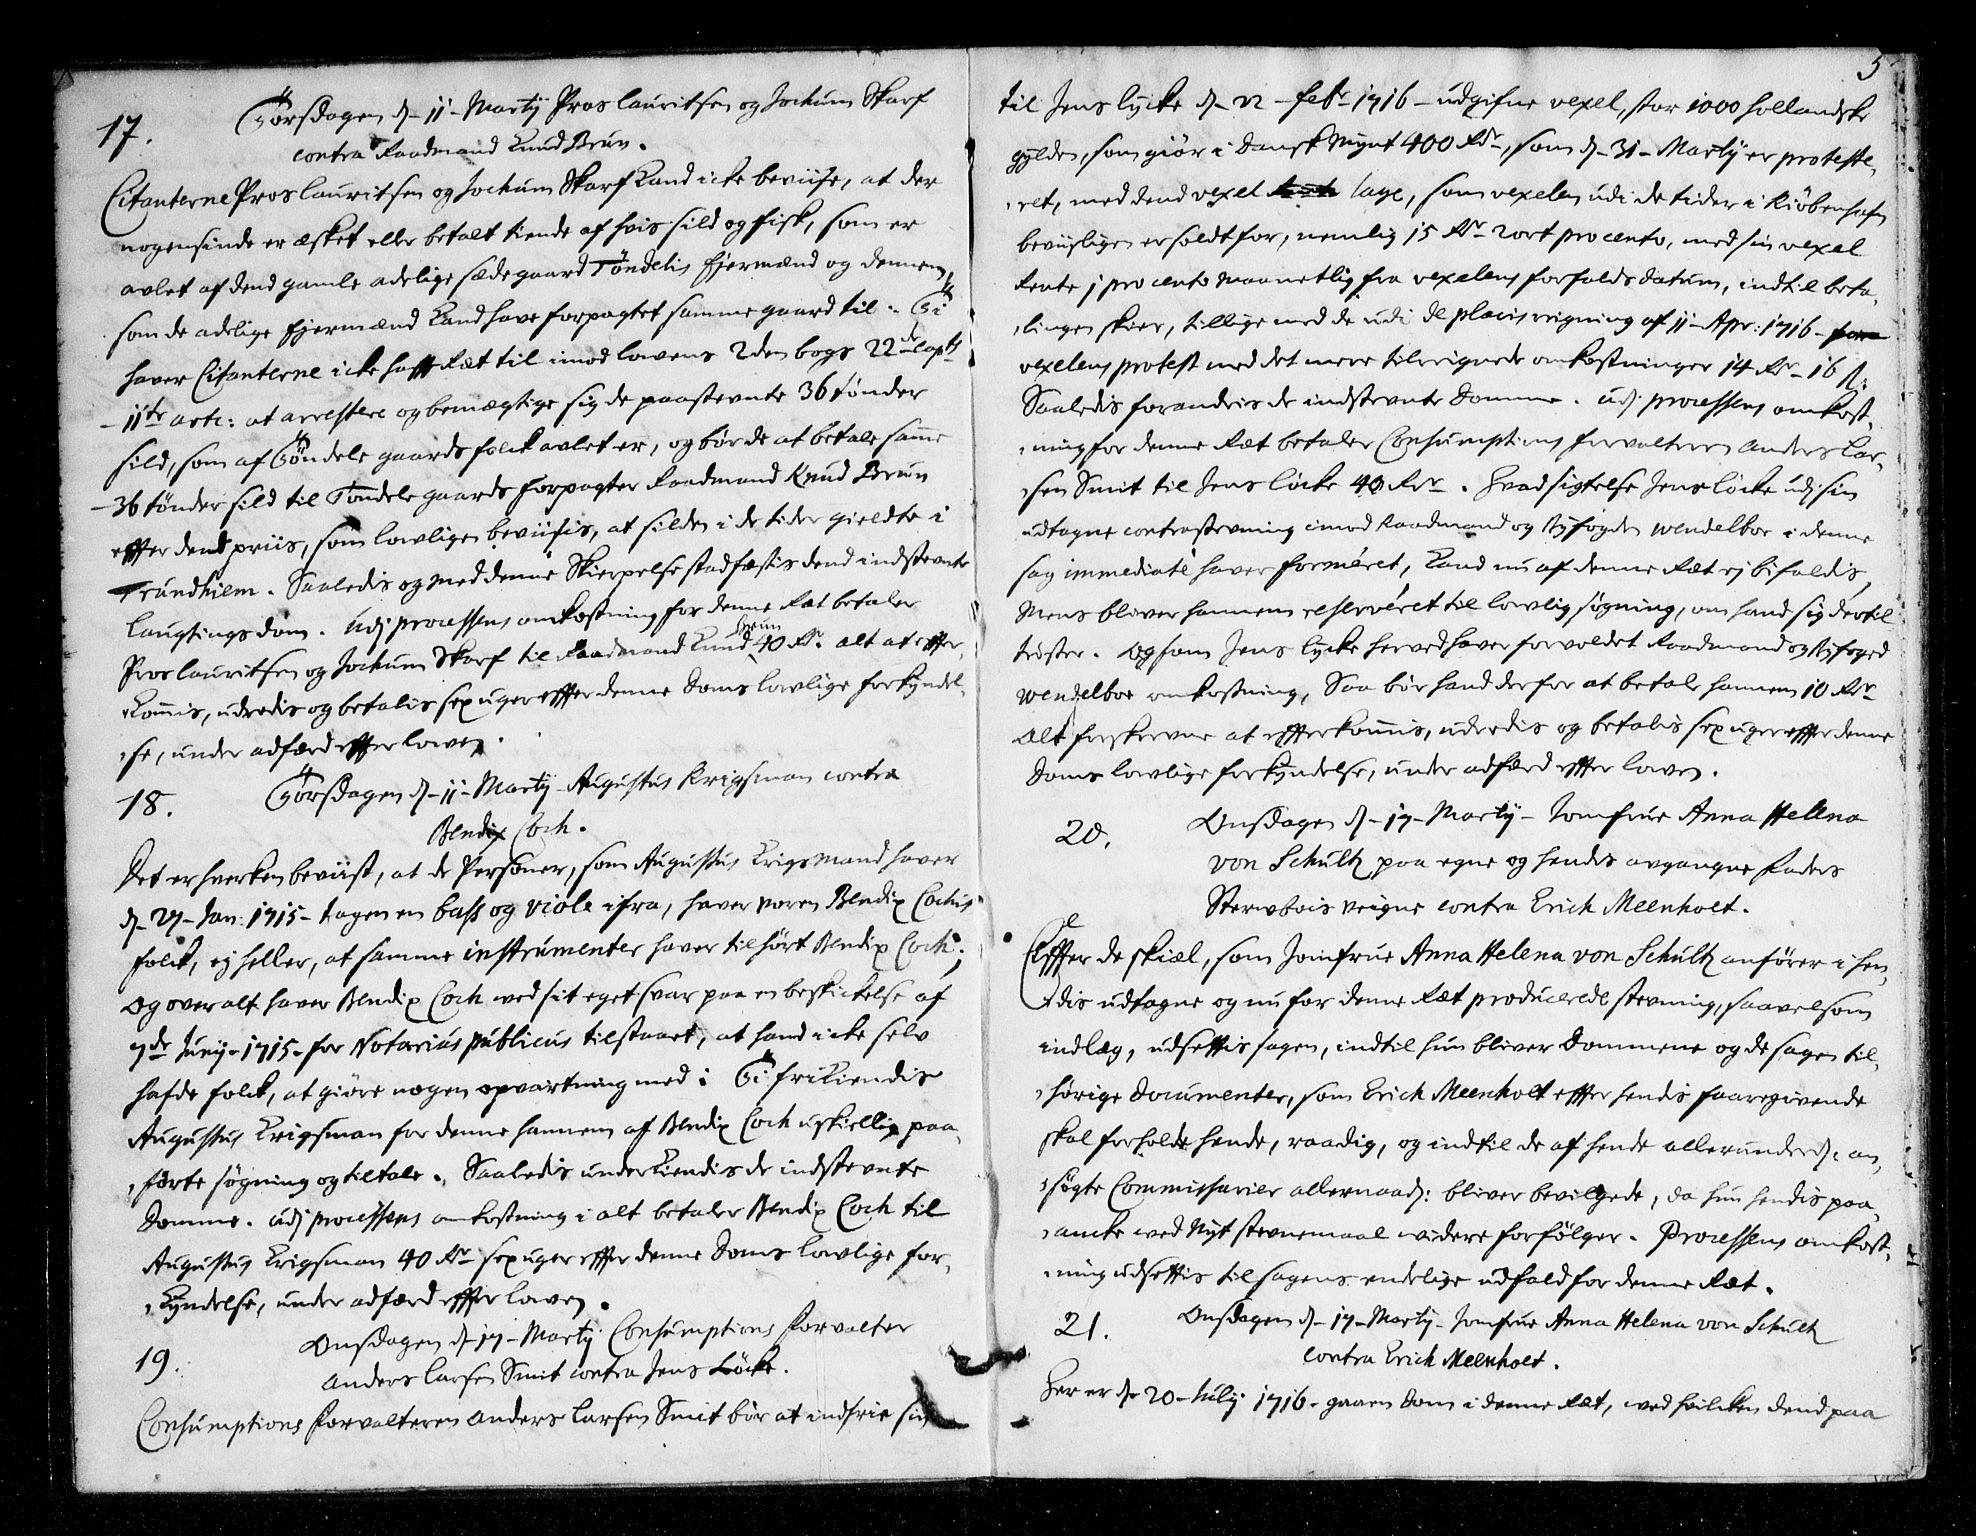 17.
Torsdagen d. 11. Martij Pros lauritsen og Jochum Skarf
contra Raadmand Knud Brun.
Citanterne Pros lauritsen og Jochum Skarf kand icke beviise, at der
nogensinde er æsket eller betalt tiende af hvis sild og fisk, som er
avlet af dend gamle adelige sædegaard Tøndelis Ejermænd og dennem
som de adelige Ejermænd kand have forpagtet samme gaard til. Ti
haver Citanterne icke hafft Ræt til imod lovens 2den bogs 22de Capts
11te artc: at arrestere og bemægtige sig de paastevnte 36 tønder
sild, som af Tøndels gaards folck avlet er, og bør de at betale samme
36 tønder sild til Tøndele gaards forpagter Raadmand Knud Brun
effter dend priis, som lovligen beviisis, at silden i de tider gieldte i
Trundhiem. Saaledis og med denne Skierpelse stadfæstis dend indstevnte
laugtings dom. Udj processens omkostning for denne Ræt betaler
Pros lauritsen og Jochum Skarf til Raadmand Knud Brun 40 Rdr. alt at effter,
kommis, udredis og betalis sex uger effter denne Doms lovlige forkyndel,
se, under adfærd effter loven.
18.
Torsdagen d. 11. Martij Augustus Krigsman contra
Bendix Coch.
Det er hverken beviist, at de Personer, som Augustus Krigsmand haver
d. 27. Jan: 1715. tagen en bass og viole ifra, haver voren Bendix Cochis
folck, ej heller, at samme instrumenter haver tilhørt Bendix Coch;
Og overalt haver Bendix Coch ved sit eget svar paa en beskickelse af
7de Junij 1715. for Notarius publicus tilstaaet, at hand icke selv
hafde folck, at giøre nogen opvartning med: Ti frikiendis
Augustus Krigsman for denne hannem af Bendix Coch uskiellig paa,
førte søgning og tiltale. Saaledis underkiendis de indstevnte
Domme. Udj processens omkostning i alt betaler Bendix Coch til
Augustus Krigsman 40 Rdr sex uger effter denne Doms lovlige for,
kyndelse, under adfærd effter loven.
19.
Onsdagen d. 17. Martij Consumptions Forvalter
Anders Larsen Smit contra Jens Løcke.
Consumptions Forvalteren Anders Larsen Smit bør at indfrie sin
5
til Jens lycke d. 22. febr 1716 udgifne vexel, stor 1000 hollandske
gylden, som giør i Dansk Mynt 400 Rdr, som d. 31. Martij er proteste,
ret, med dend vexel lage, som vexelen udi de tider i Kiøbenhafn
beviisligen er soldt for, nemlig 15 Rdr 2ort pro cento, med sin vexel
Rente j pro cento maanetlig fra vexelens forfalds datum, indtil beta,
lingen skier, tillige med de udi de placis reigning af 11. Apr: 1716 for
vexelens protest med det mere tilreignede omkostninger 14 Rdr 16 s;
Saaledis forandris de indstevnte Domme. Udj processens omkost,
ning for denne Ræt betaler Consumptions forvalteren Anders Lar,
sen Smit til Jens Løcke 40 Rdr. Hvad sigtelse Jens Løcke udj sin
udtagne contrastevning imod Raadmand og Byfogden Wendelboe i denne
sag immediatè haver formèret, kand nu af denne Ræt ej bifaldis,
Mens bliver hannem reservéret til lovlig søgning, om hand sig dertil
trøster. Og som Jens Lycke herved haver forvoldet Raadmand og Byfoged
Wendelboe omkostning, Saa bør hand derfor at betale hannem 10 Rdr
Alt forskrevne at effterkommis, uderedis og betalis sex uger effter denne
Doms lovlige forkyndelse, under adfærd effter loven.
20.
Onsdagen d. 17. Martij Jomfrue Anna Helena
von Schultz paa egne og hendis avgangne Faders
Sterwbois veigne contra Erich Meenholt.
Effter de skiæl, som Jomfrue Anna Helena von Schultz anfører i hen,
dis udtagne og nu for denne Ræt producerede stevning, saavelsom
indlæg, udsettis sagen, indtil hun bliver Dommene og de sagen til,
hørige Documenter, som Erich Meenholt effter hendis faaregivende
skal forholde hende, raadig, og indtil de af hende allerunderd: an,
søgte Commissarier allernaad: bliver bevilgede, da hun hendis paa,
ancke ved Nyt stevnemaal videre forfølger. Processens omkost,
ning udsettis til sagens endelige udfald for denne Ræt.
21.
Onsdagen d. 17. Martij Jomfrue Anna Helena von Schultz
contra Erich Meenholt.
Her er d. 20. Julij 1716. gaaen Dom i denne Ræt, ved hvilcken dend paa